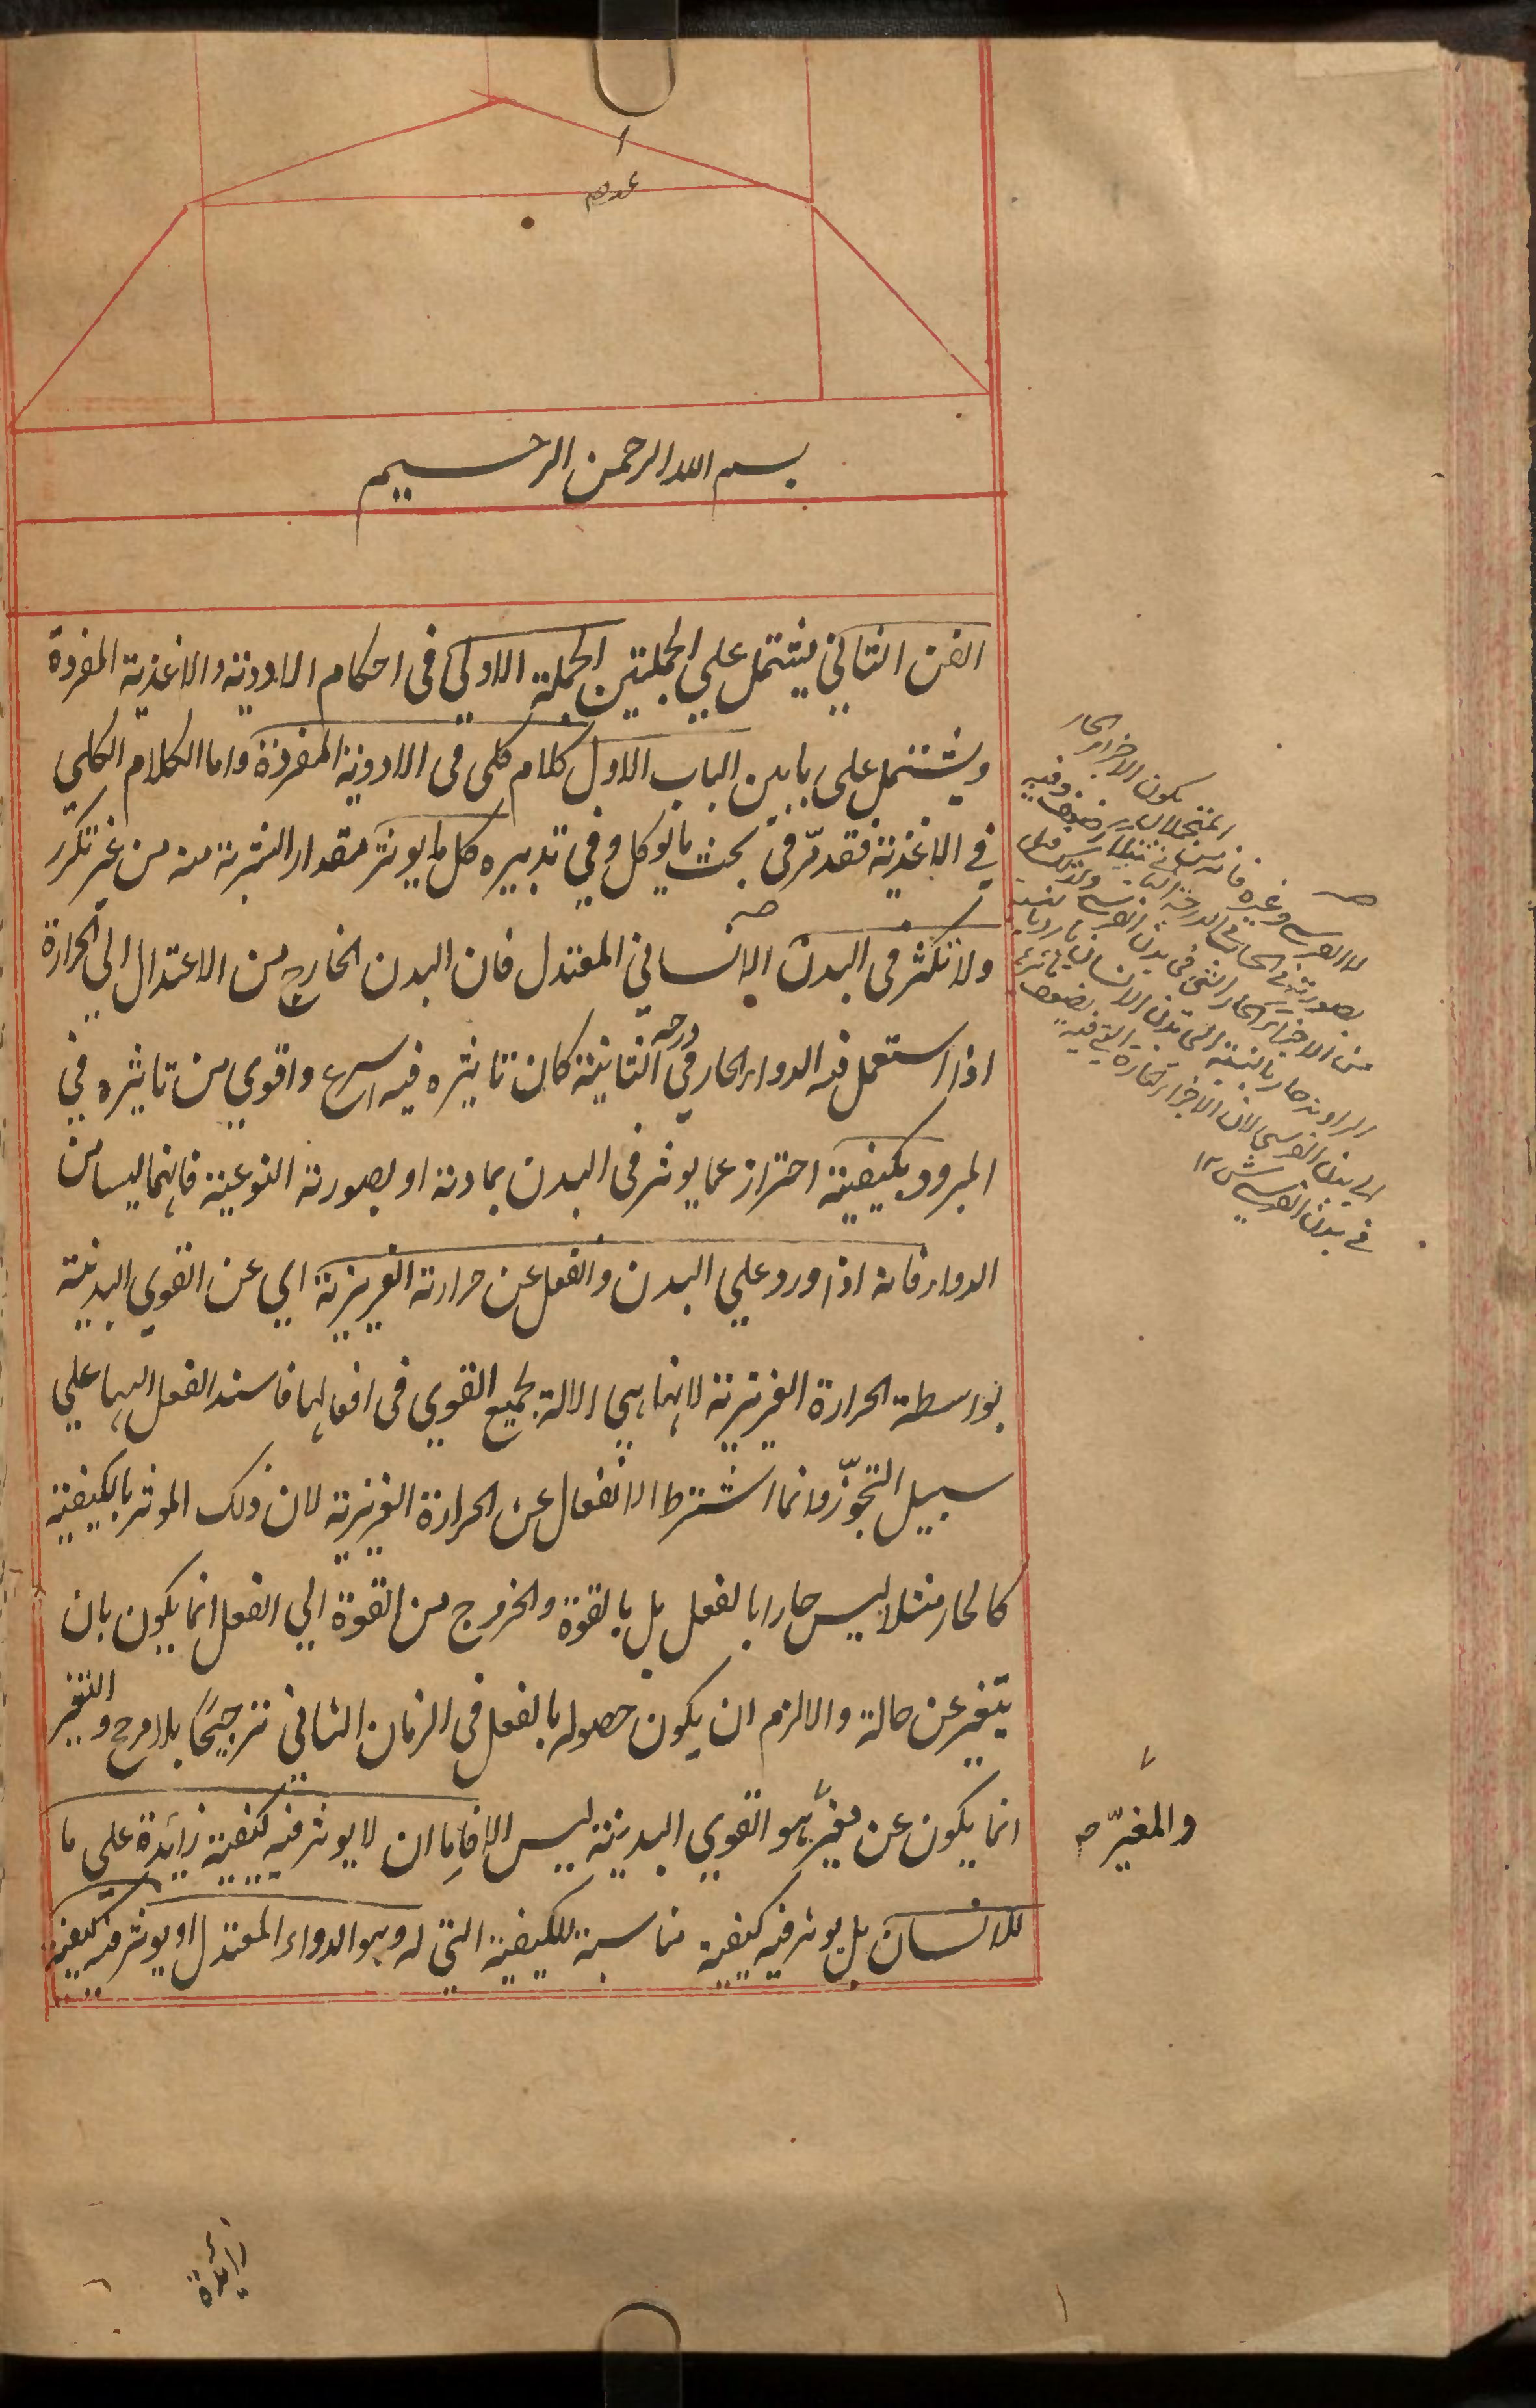 بسم الله الرحمن الرحيم
الفن الثاني يشتمل علي الجملتين الجملة الاولي في احكام الادوية والاغذية المفردة
ويشتمل علي بابين الباب الاول كلام كلي في الادوية المفردة واما الكلام الكلي
في الاغذية فقد مرّ في بحث مايوكل وفي تدبيره كل ما يوثر مقدار الشربة منه من غير تكرر
ولا تكثر في البدن الانساني المعتدل فان البدن الخارج من الاعتدال الي الحرارة
اذا استعمل فيه الدواء الحار في درجة الثانية كان تاثيره فيه اسرع واقوي من تاثيره في
المبرود بكيفيته احتراز عما يوثر في البدن بمادته او بصورته النوعية فانهما ليسا من
الدواء فانه اذا ورد علي البدن وانفعل عن حرارته الغريزية اي عن القوي البدنية
بواسطة الحرارة الغريزية لانها هي الالة لجميع القوي في افعالها فاسند الفعل اليها علي
سبيل التجوّز وانما اشترط الانفعال عن الحرارة الغريزية لان ذلك الموثر بالكيفية
كالحار مثلا ليس حارا بالفعل بل بالقوة والخروج من القوة الي الفعل انما يكون بان
يتغير عن حالة والا لزم ان يكون حصوله بالفعل في الزمان الثاني ترجيحًا بلا مرجح والتغير
انما يكون عن مغيّر هو القوي البدنية ليس الا فاما ان لا يوثر فيه كيفية زائدة علي ما
للانسان بل يوثر فيه كيفية مناسبة للكيفية التي له وهو الدواء المعتدل او يوثر فيه كيفية
والمغيّر صح
بدن الفرس وغيره
من الاجزاء الحار
الي بدن الفرس لان الاجزاء الحارة
في بدن الفرس ش ١٢
زائدة
١